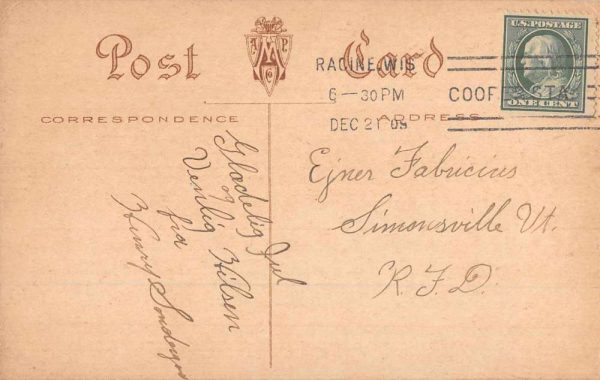 Post Card
AMP
CO
U.S. POSTAGE
ONE CENT
RACINE, WIS
6-30PM
DEC 21 09
COOF STA.
CORRESPONDENCE
ADDRESS
Glædelig Jul
og
Venlig Hilsen
fra
Henry
Ejner Fabricius
Simonsville Vt.
R.F.D.